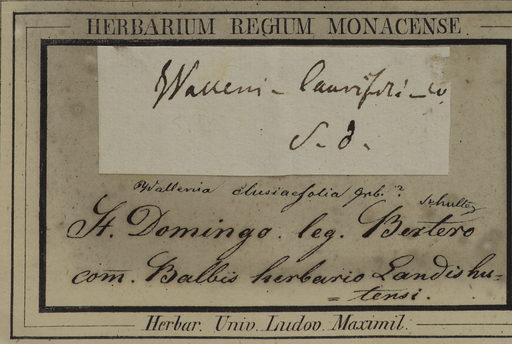 HERBARIUM REGIUM MONACENSE.
Walleni- laurifoli-
S. d.
Wallenia clusiaefolia Grb.?
Schultes
St. Domingo. leg. Bertero
com. Balbis herbario Landishu=
=tensi.
Herbar. Univ. Ludov. Maximil.